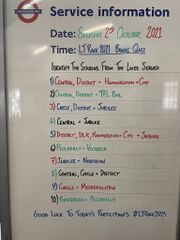 UNDERGROUND
Service information
Date: Saturday 2nd October 2021
Time: LT Race 2021 Bonus Quiz
Identify The Stations From The Lines Served
1) Central, District + Hammersmith + City
2) Central, District + TFL Rail
3) Circle, District + Jubilee
4) Central + Jubilee
5) District, DLR, Hammersmith + City + Jubilee
6) Piccadilly + Victoria
7) Jubilee + Northern
8) Central, Circle + District
9) Circle + Metropolitan
10) Bakerloo + Piccadilly
Good Luck To Today's Participants #LTRace2021